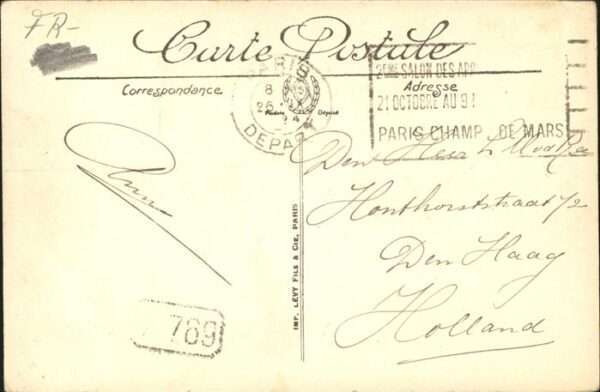 FR-
Carte Postale
Correspondance
Adresse
PARIS
8
25
24
DEPART
Modèle Déposé
2EME SALON DES
21 OCTOBRE AU 9
PARIS CHAMP DE MARS
Den Heer
Honthorststraat 1/2
Den Haag
Holland
IMP. LÉVY FILS & CIE, PARIS
769